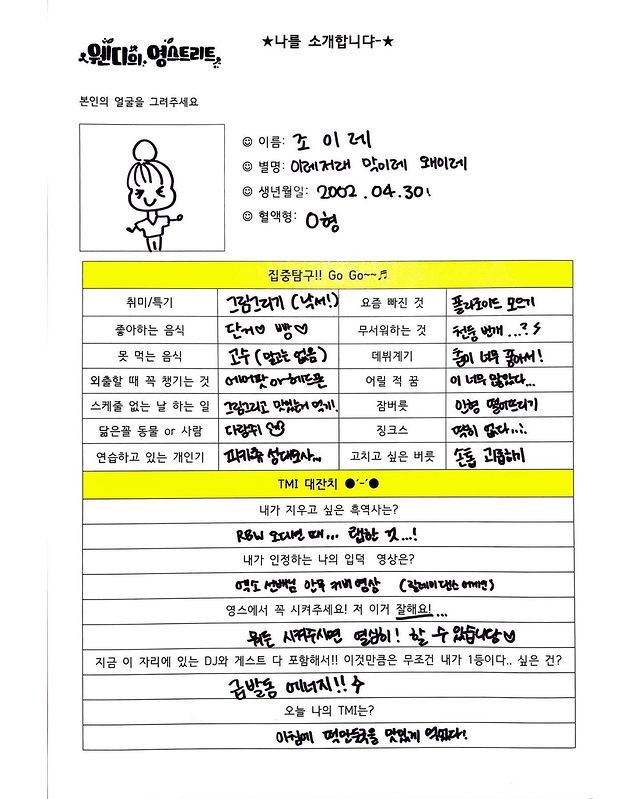 ★나를 소개합니댜-★
웬디의 영스트리트
본인의 얼굴을 그려주세요
☺ 이름: 조 이 레
☺ 별명: 이레저래 막이레 왜이레
☺ 생년월일: 2002.04.30
☺ 혈액형: O형
집중탐구!! Go Go~~♬
취미/특기 그림그리기 (낙서!) 요즘 빠진 것 폴라로이드 모으기
좋아하는 음식 단거♡ 빵♡ 무서워하는 것 천둥 번개 ...?⚡
못 먹는 음식 고수 (말고는 없음) 데뷔계기 춤이 너무 좋아서!
외출할 때 꼭 챙기는 것 에어팟 or 헤드폰 어릴 적 꿈 이 너무 많았다...
스케줄 없는 날 하는 일 그림그리고 맛있는거 먹기! 잠버릇 인형 떨어뜨리기
닮은꼴 동물 or 사람 다람쥐 징크스 딱히 없다...!
연습하고 있는 개인기 피카츄 성대모사... 고치고 싶은 버릇 손톱 괴롭히기
TMI 대잔치 ●'-'●
내가 지우고 싶은 흑역사는?
RBW 오디션 때... 랩한 것...!
내가 인정하는 나의 입덕 영상은?
선배님 안무 커버 영상
영스에서 꼭 시켜주세요! 저 이거 잘해요! ...
뭐든 시켜주시면 열심히! 할 수 있습니당♡
지금 이 자리에 있는 DJ와 게스트 다 포함해서!! 이것만큼은 무조건 내가 1등이다.. 싶은 건?
급발동 에너지!!⚡
오늘 나의 TMI는?
아침에 떡만둣국을 맛있게 먹었다!